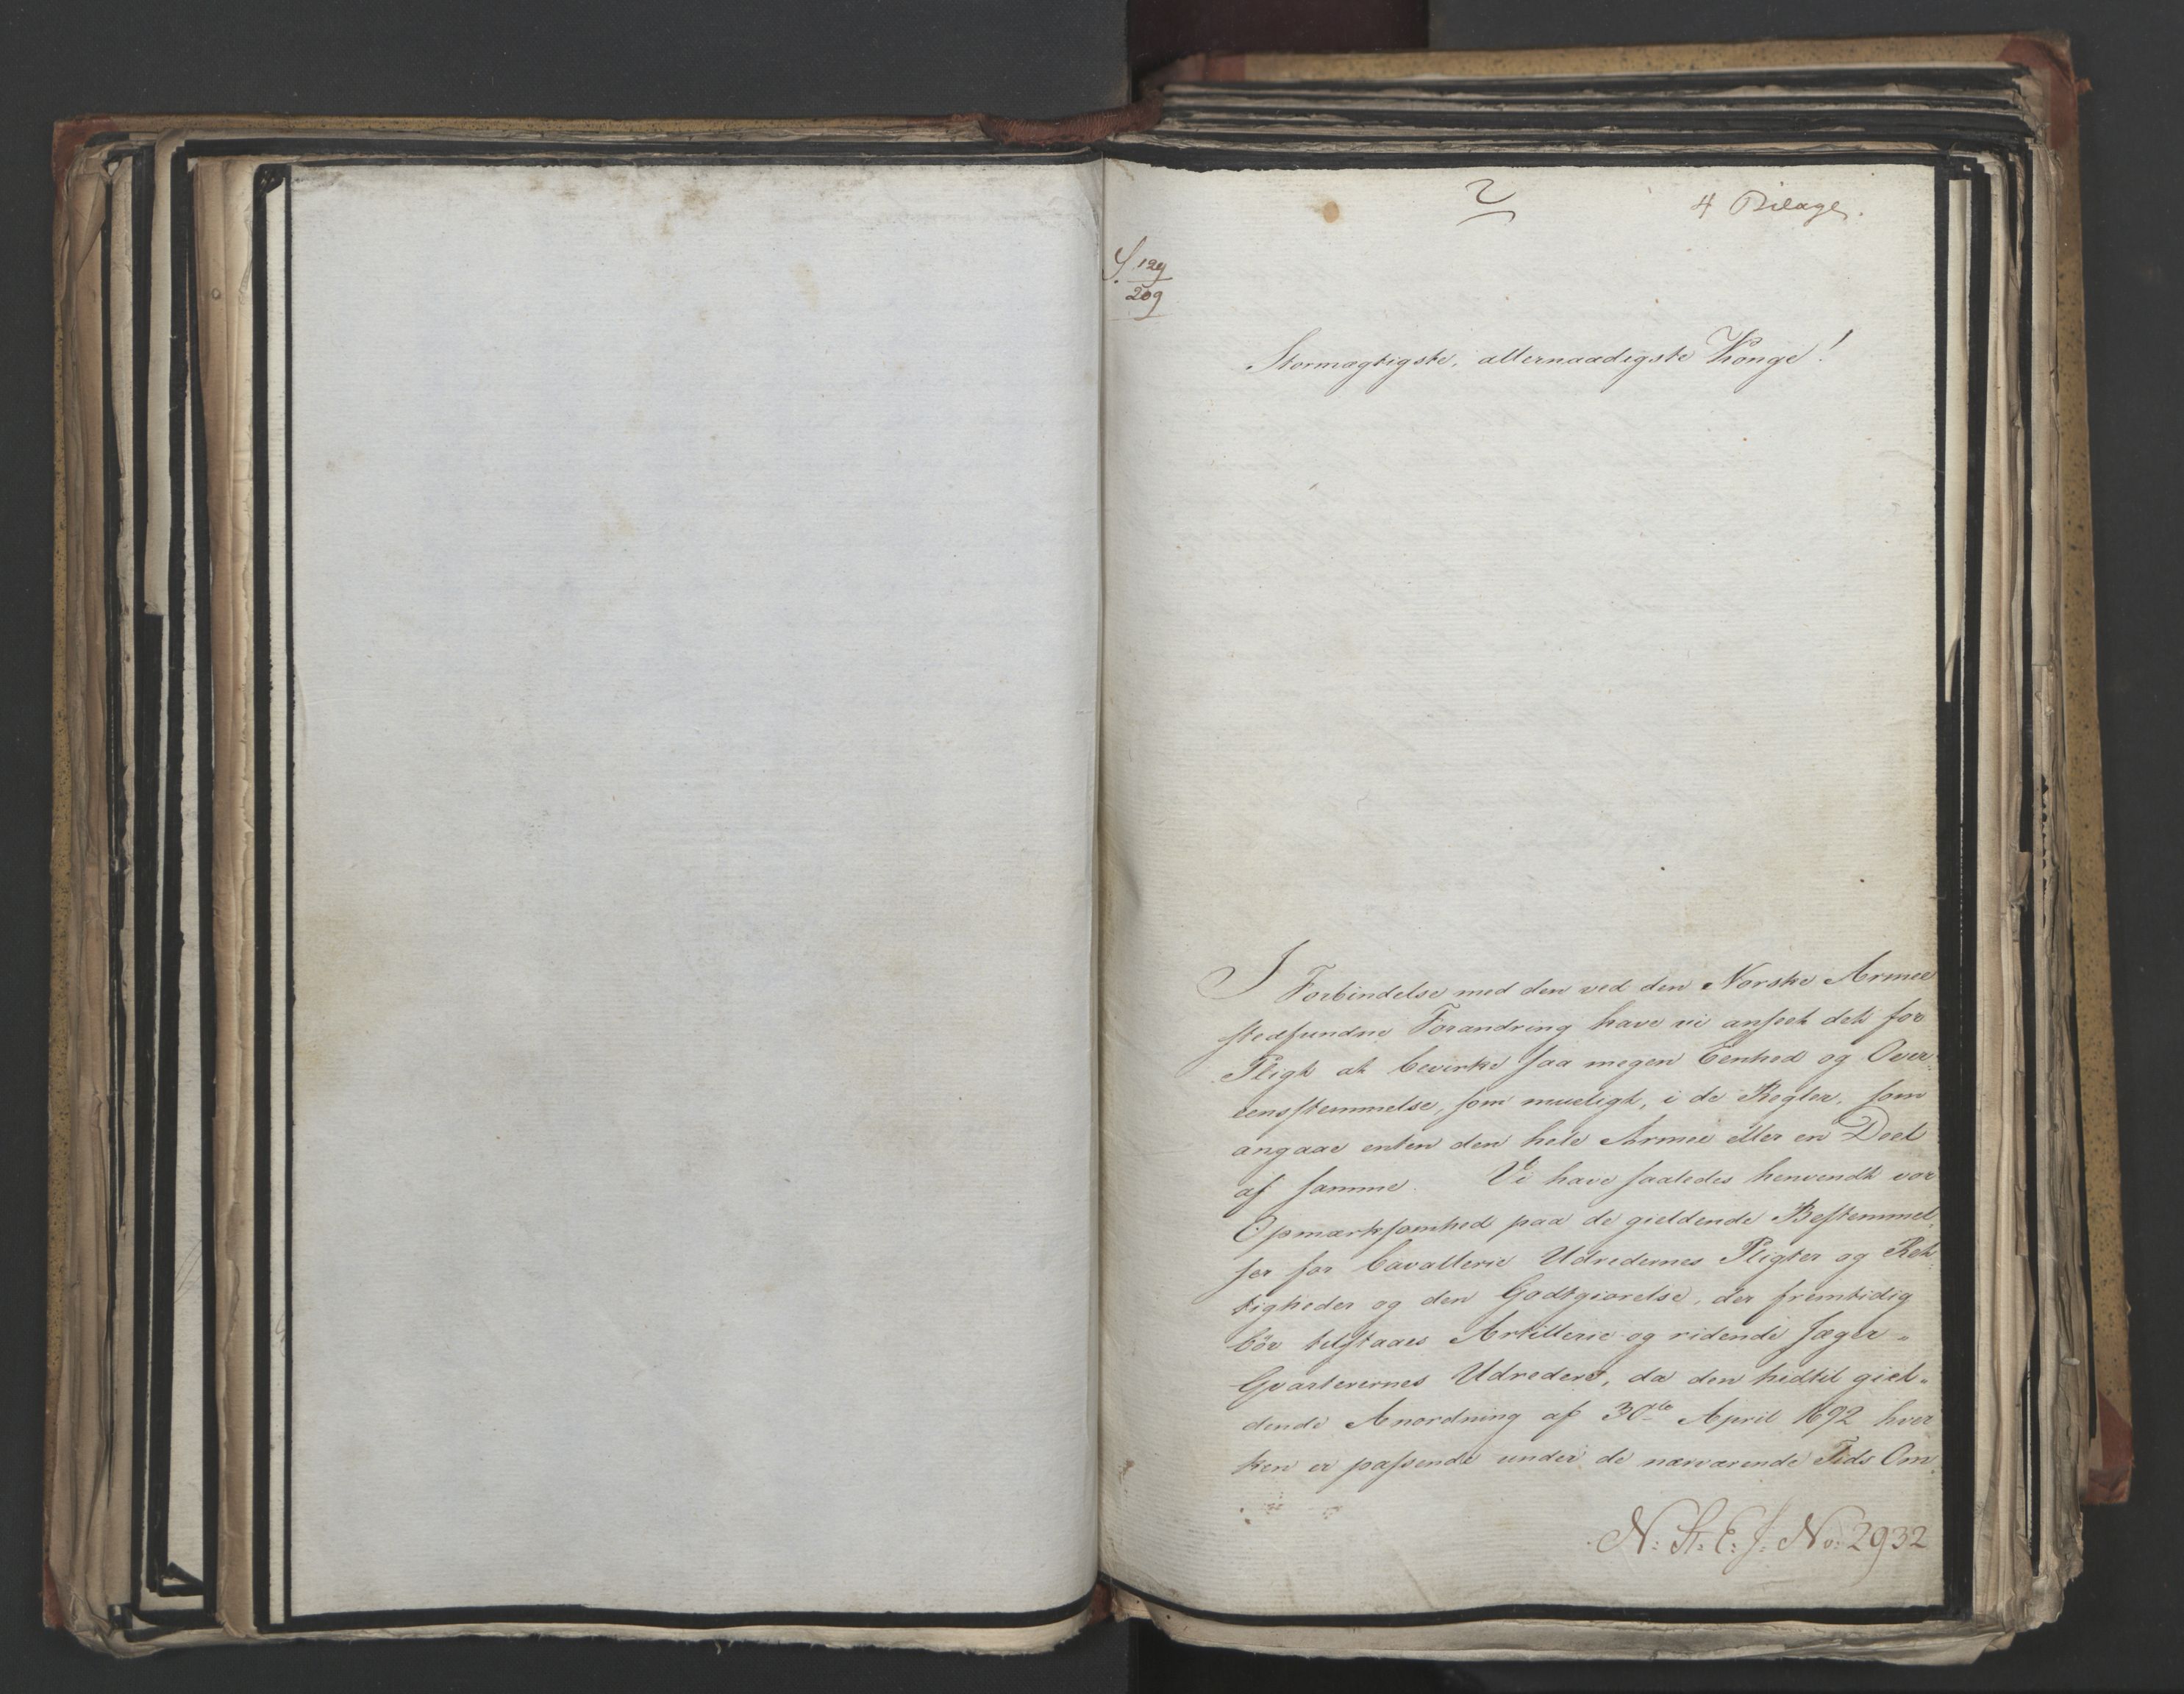 2
4 Bilage.
S. 129
209
Stormægtigste, allernaadigste Konge!
I Forbindelse med den ved den Norske Armee
stedfundne Forandring have vi anseet det for
Pligt at bevirke saa megen Eenhed og Over-
eensstemmelse, som mueligt, i de Regler, som
angaae enten den hele Armee eller en Deel
af samme. Vi have saaledes henvendt vor
Opmærksomhed paa de gieldende Bestemmel-
ser for Cavallerie Udredernes Pligter og Ret-
tigheder og den Godtgiørelse, der fremtidig
bör tilstaaes Artillerie og ridende Jæger-
Qvarterernes Udredere, da den hidtil giel-
dende Anordning af 30te April 1692 hver-
ken er passende under de nærværende Tids Om-
N: St: E: J: No: 2932